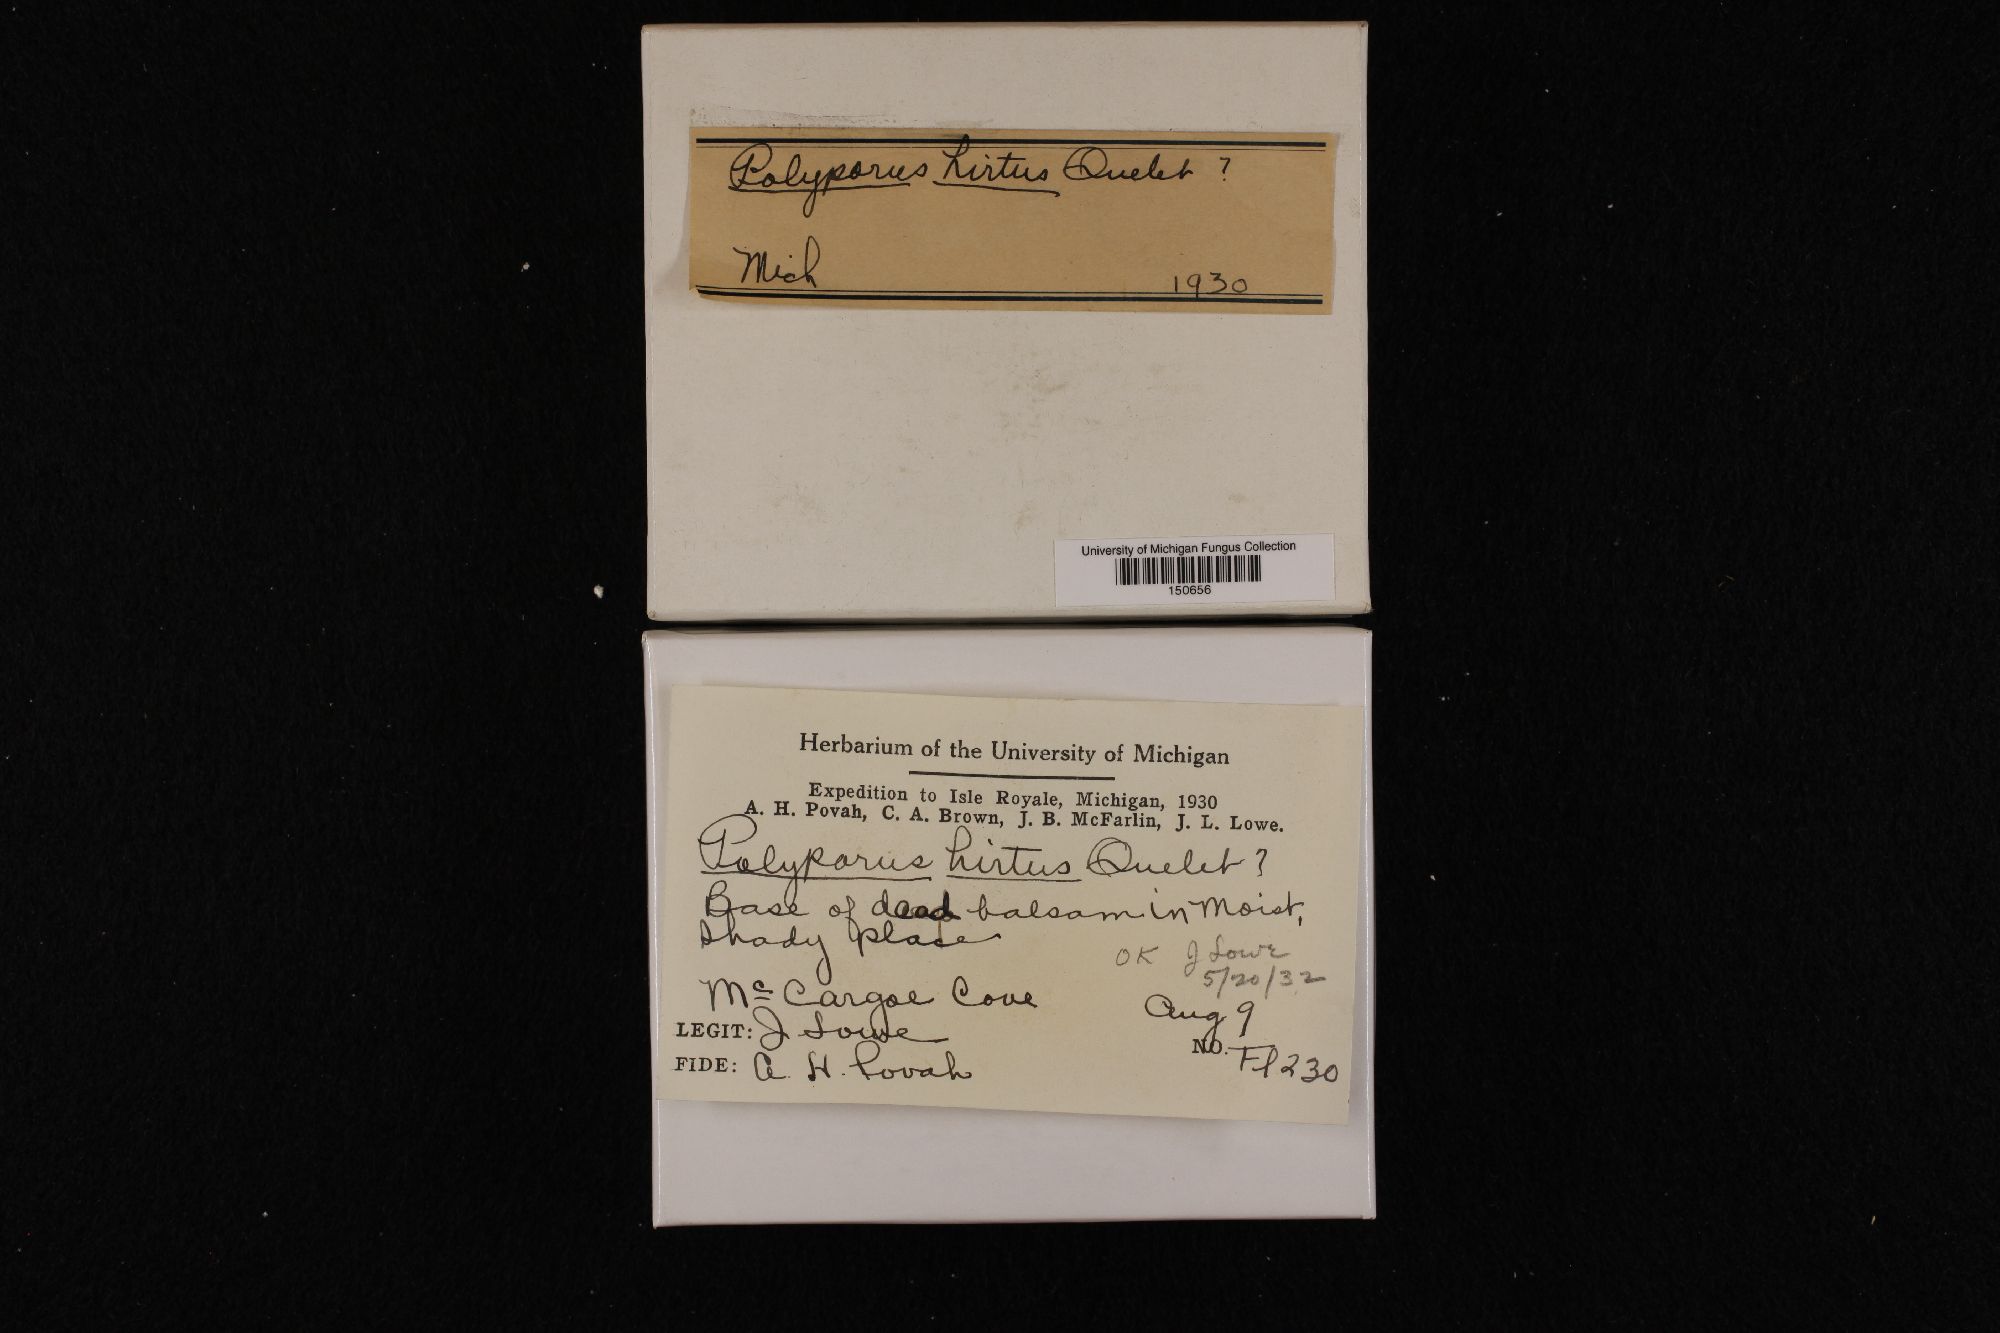 Polyporus hirtus Quelet ?
Mich
1930
University of Michigan Fungus Collection
150656
Herbarium of the University of Michigan
Expedition to Isle Royale, Michigan, 1930
A. H. Povah, C. A. Brown, J. B. McFarlin, J. L. Lowe.
Polyporus hirtus Quelet ?
Base of dead balsam in moist,
shady place
OK J Lowe
5/20/32
Mc Cargoe Cove
Aug 9
LEGIT: J Lowe
NO. Fl 230
FIDE: A. H. Povah